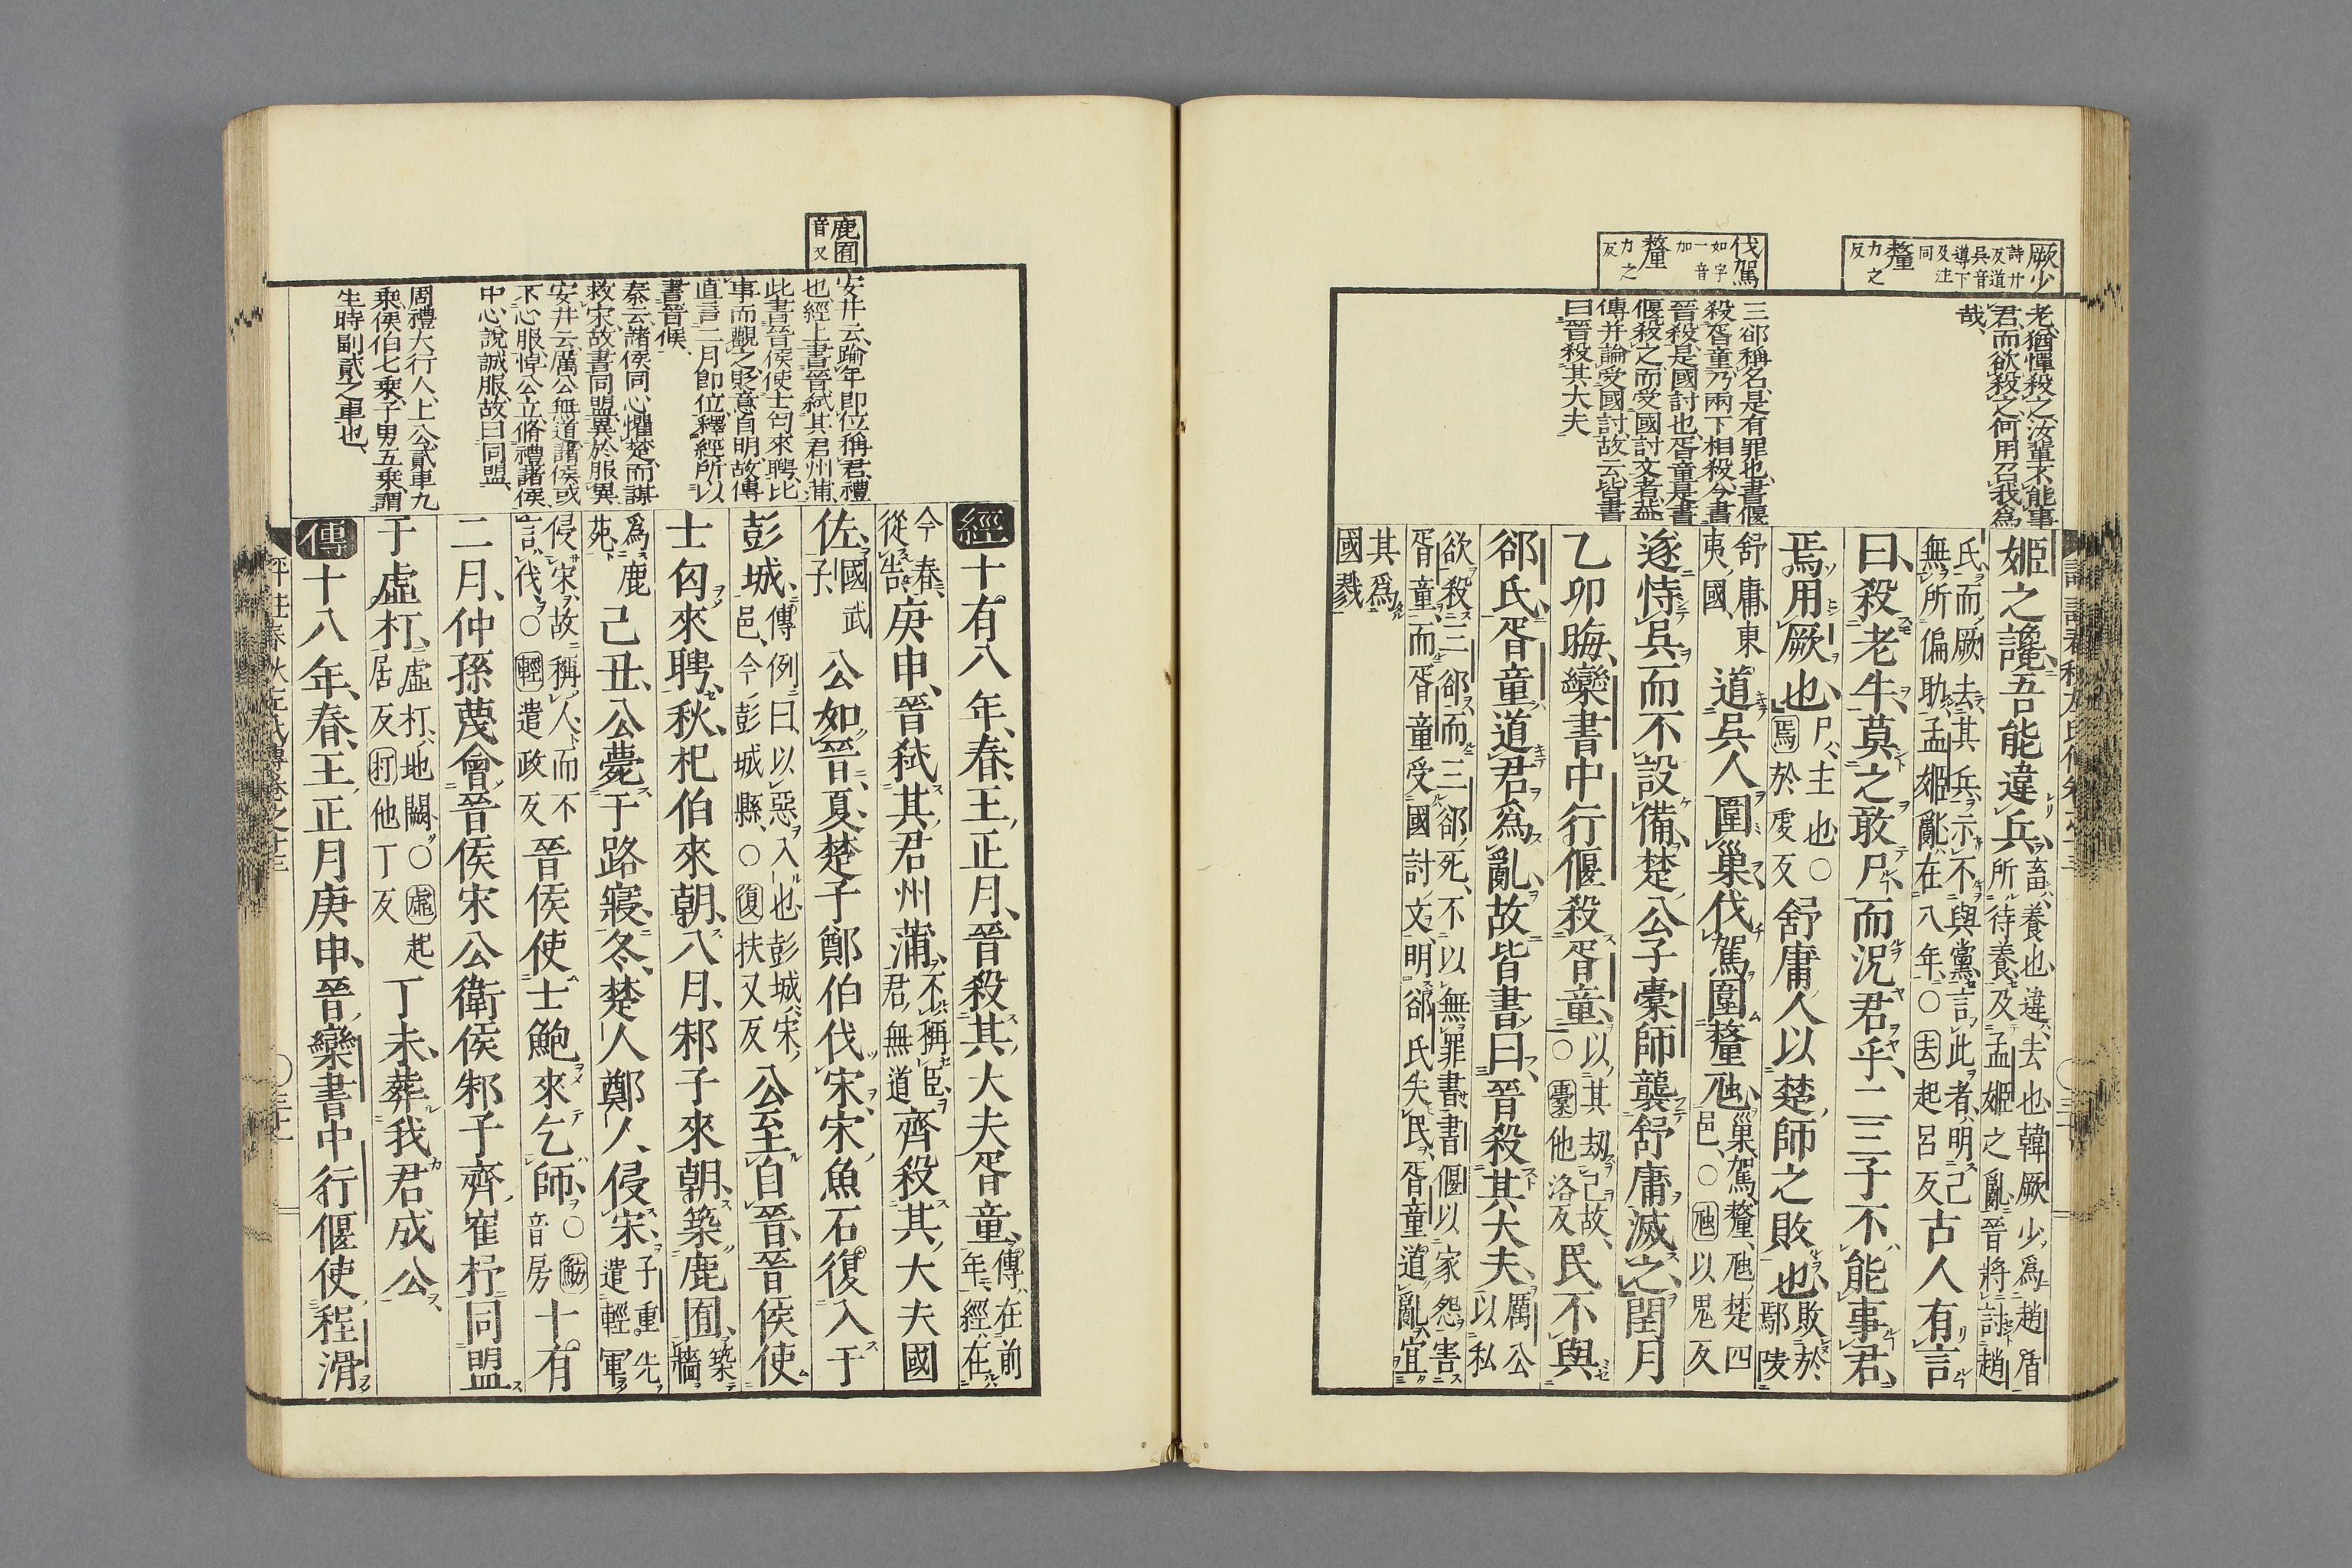 厥少
詩廿
反道
呉音
導下
及注
同
釐
力之
反
伐駕
如字
一音
加
釐
力之
反
老猶憚殺之汝輩不能事
君而欲殺之何用召我爲
哉
三郤稱名是有罪也書偃
殺胥童乃兩下相殺今書
晉殺是國討也胥童是書
偃殺之而受國討文者益
傳并論受國討故云皆書
曰晉殺其大夫
姬之讒吾能違兵
畜養也違去也韓厥少爲趙盾
所待養及孟姬之亂晉將討趙
氏而厥去其兵示不與黨言此者明己
無所偏助孟姬亂在八年○去起呂反
古人有言
曰殺老牛莫之敢尸而況君乎二三子不能事君
焉用厥也
尸主也○
焉於虔反
舒庸人以楚師之敗也
敗於
鄢陵
舒庸東
夷國
道呉人圍巢伐駕圍釐虺
巢駕釐虺楚四
邑○虺以鬼反
遂恃呉而不設備楚公子橐師襲舒庸滅之閏月
乙卯晦欒書中行偃殺胥童
以其劫己故
○橐他洛反
民不與
郤氏胥童道君爲亂故皆書曰晉殺其大夫
厲公
以私
欲殺三郤而三郤死不以無罪書書偃以家怨害
胥童而胥童受國討文明郤氏失民胥童道亂宜
其爲
國戮
鹿囿
音又
安井云踰年即位稱君禮
也經上書晉弑其君州蒲
此書晉侯使士匄來聘比
事而觀之貶意自明故傳
直言二月即位釋經所以
書晉侯
秦云諸侯同心懼楚而謀
救宋故書同盟異於服異
安井云厲公無道諸侯或
不心服悼公立脩禮諸侯
中心說誠服故曰同盟
周禮大行人上公貳車九
乘侯伯七乘子男五乘謂
生時副貳之車也
經
十有八年春王正月晉殺其大夫胥童
傳在前
年經在
今春
從告
庚申晉弑其君州蒲
不稱臣
君無道
齊殺其大夫國
佐
國武
子
公如晉夏楚子鄭伯伐宋宋魚石復入于
彭城
傳例曰以惡入也彭城宋
邑今彭城縣○復扶又反
公至自晉晉侯使
士匄來聘秋杞伯來朝八月邾子來朝築鹿囿
築
牆
爲鹿
苑
己丑公薨于路寢冬楚人鄭人侵宋
子重先
遣輕軍
侵宋故稱人而不
言伐○輕遣政反
晉侯使士魴來乞師
○魴
音房
十有
二月仲孫蔑會晉侯宋公衛侯邾子齊崔杼同盟
于虛朾
虛朾地闕○虛起
居反朾他丁反
丁未葬我君成公
傳
十八年春王正月庚申晉欒書中行偃使程滑
評註春秋左氏傳卷之十三